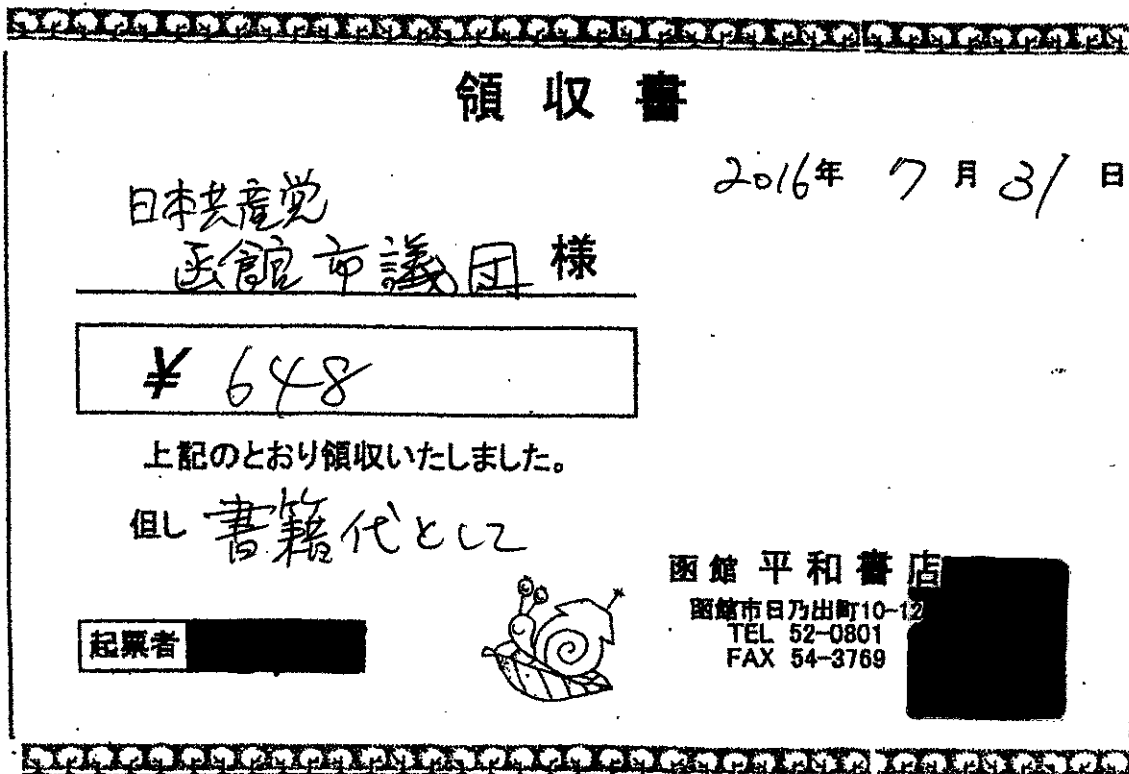 領収書
2016年 7月31日
日本共産党
函館市議団 様
¥ 648
上記のとおり領収いたしました。
但し 書籍代として
函館 平和書店
函館市日乃出町10-12
TEL 52-0801
FAX 54-3769
起票者